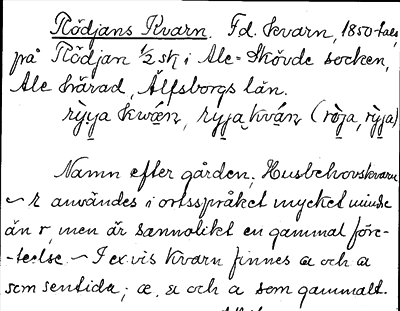 Rödjans Kvarn. Fd. kvarn, 1850-tals,
på Rödjan 1/2 sk i Ale-Skövde socken,
Ale härad, Älfsborgs län.
rÿya kwæn, ryja kván (röja, ryja)
Namn efter gården, Husbehovskvarn
~ r användes i ortsspråket mycket mindre
än r, men är sannolikt en gammal före-
-teelse. ~ I ex.vis kvarn finnes a och a
som sentida; æ, a och a som gammalt.